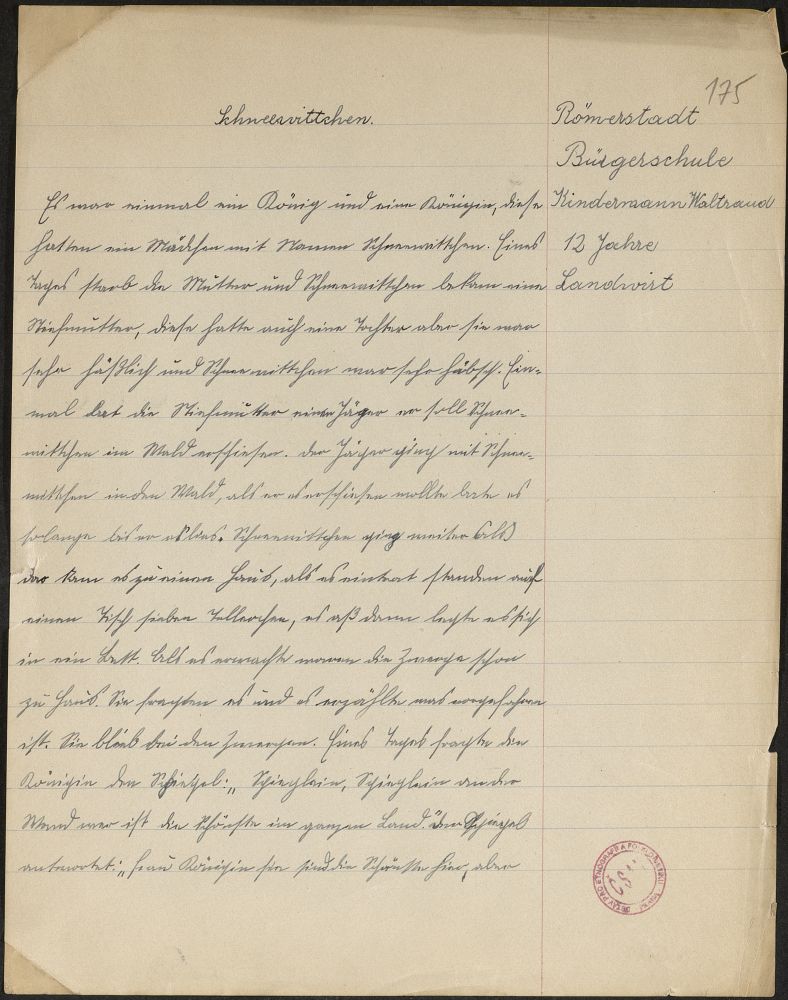 175
Schneewittchen.
Römerstadt
Bürgerschule
Kindermann Waltraud
12 Jahre
Landwirt
Es war einmal ein König und eine Königin, diese
hatten ein Mädchen mit Namen Schneewittchen. Eines
Tages starb die Mutter und Schneewittchen bekam eine
Stiefmutter, diese hatte auch eine Tochter aber sie war
sehr häßlich und Schneewittchen war sehr hübsch. Ein-
mal bat die Stiefmutter einen Jäger er soll Schnee-
wittchen im Wald erschiesen. Der Jäger ging mit Schnee-
wittchen in den Wald, als er es erschiesen wollte bete es
solange bis er es lies. Schneewittchen ging weiter
kam es zu einen Haus, als es eintrat standen auf
einen Tisch sieben Tellerchen, es aß dann legte es sich
in ein Bett. Als es erwachte waren die Zwerge schon
zu Haus. Sie fragten es und es erzählte was vorgefahren
ist. Sie blieb bei den Zwergen. Eines Tages fragte die
Königin den Spiegel: „Spieglein, Spieglein an der
Wand wer ist die Schönste im ganzen Land." Der Spiegel
antwortet: „Frau Königin sie sind die Schönste hier, aber